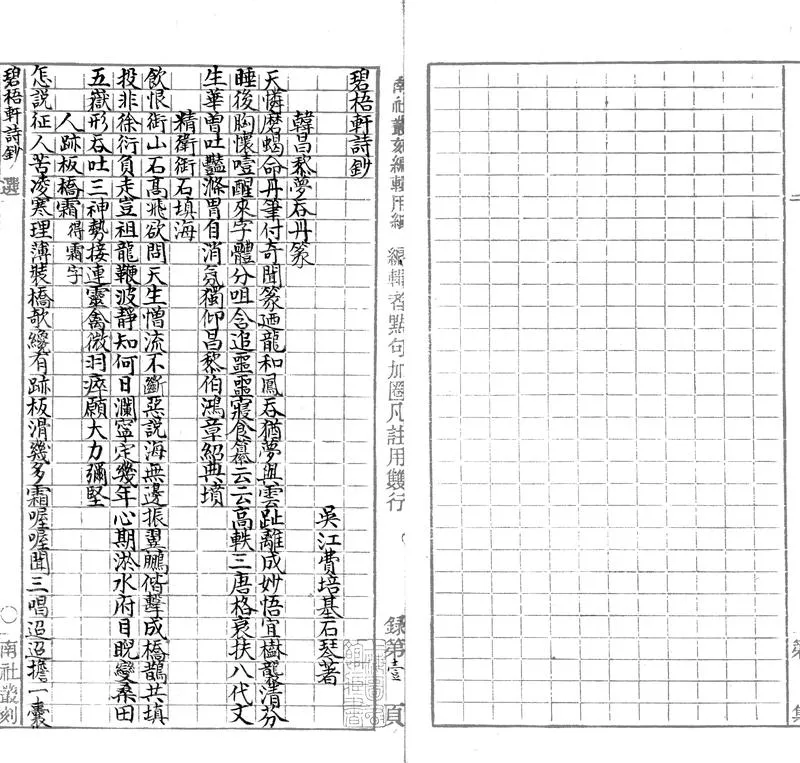 第
集
南社叢刻編輯用紙
編輯者點句加圈凡註用雙行
錄第壹頁
碧梧軒詩鈔
吳江費培基石琴著
韓昌黎夢吞丹篆
天憐磨蝎命丹筆付奇聞篆迺龍和鳳吞猶夢與雲趾離成妙悟宜樹襲清芬
睡後胸懷噎醒來字體分咀含追噩噩寢食纂云云高軼三唐格衰扶八代文
生華曾吐豔滌胃自消氛獨仰昌黎伯鴻章紹典墳
精衛銜石填海
飲恨銜山石高飛欲問天生憎流不斷惡說海無邊振翼鵬偕擊成橋鵲共填
投非徐衍負走豈祖龍鞭波靜知何日瀾寧定幾年心期淤水府目睨變桑田
五嶽形吞吐三神勢接連靈禽微羽瘁願大力彌堅
人跡板橋霜得霜字
怎說征人苦凌寒理薄裝橋欹纔有跡板滑幾多霜喔喔聞三唱迢迢擔一囊
碧梧軒詩鈔
選
南社叢刻